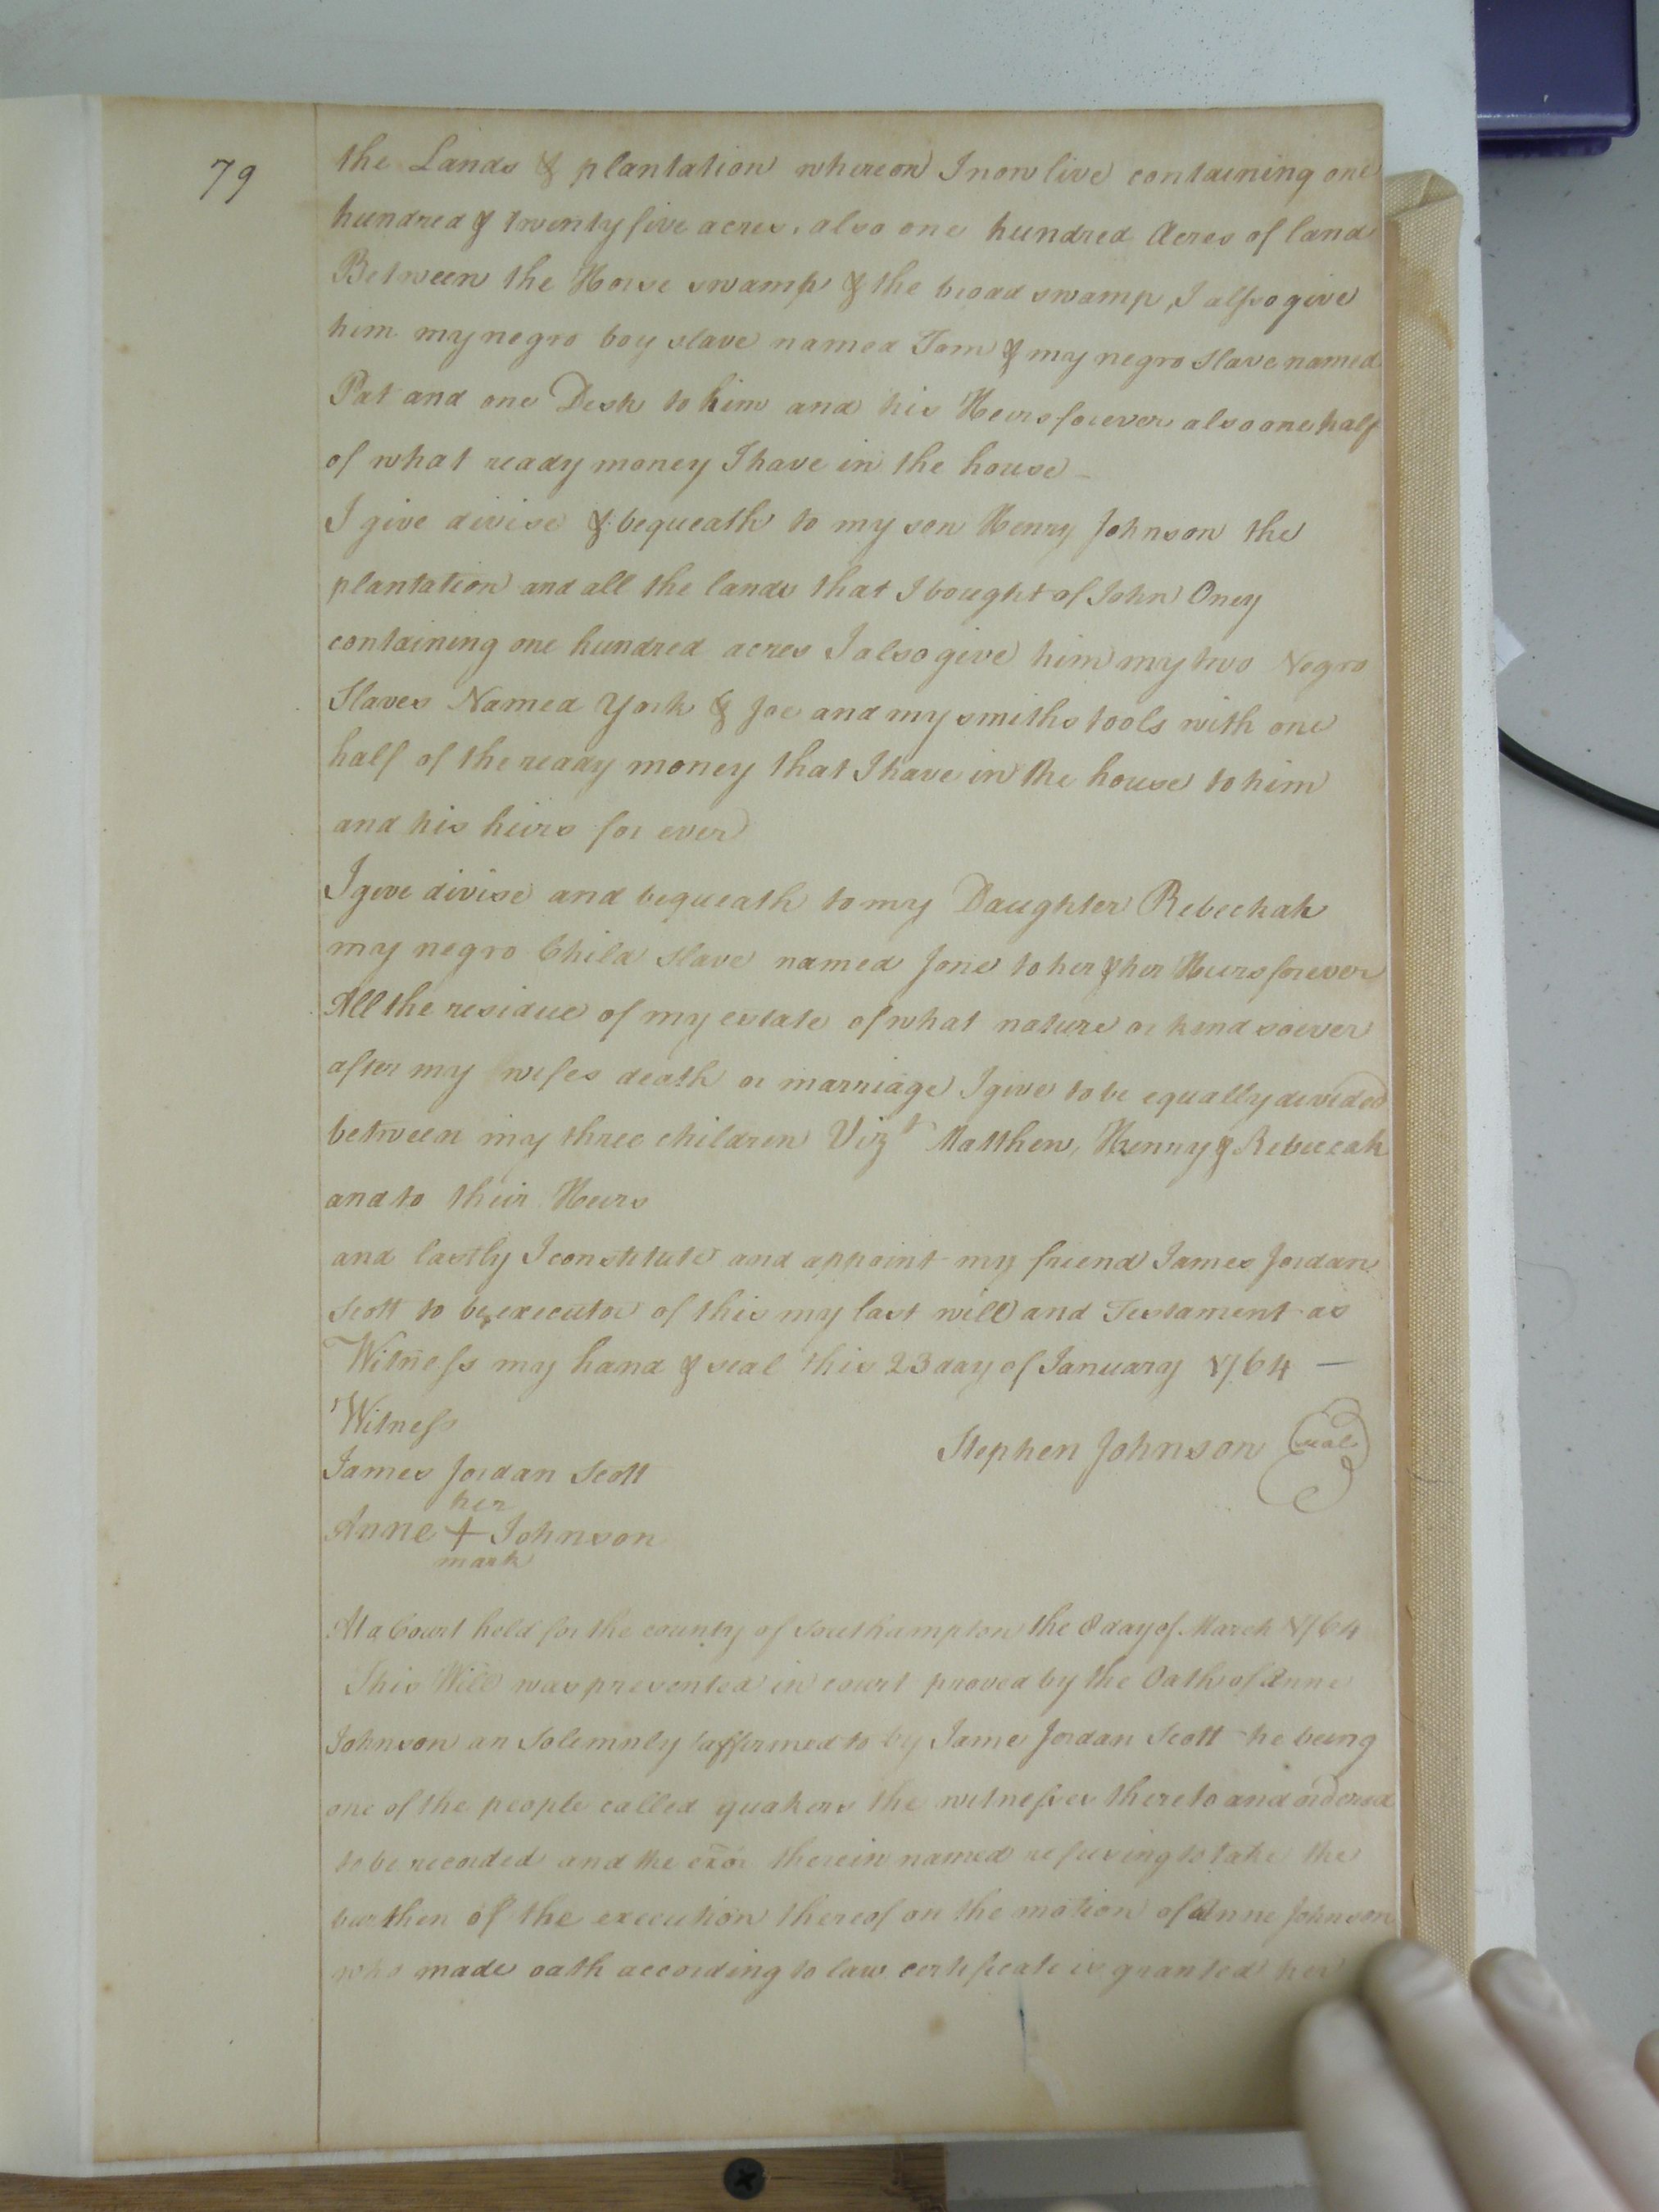 79
the Lands & plantation whereon I now live containing one
hundred & twenty five acres, also one hundred Acres of land
Between the Horse swamp & the broad swamp, I also give
him my negro boy slave named Tom & my negro slave named
Pat and one Desk to him and his Heirs forever also one half
of what ready money I have in the house
I give divise & bequeath to my son Henry Johnson the
plantation and all the lands that I bought of John Oney
containing one hundred acres I also give him my two Negro
Slaves Named York & Joe and my smiths tools with one
half of the ready money that I have in the house to him
and his heirs for ever
I give divise and bequeath to my Daughter Rebeckah
my negro Child slave named Jone to her & her Heirs forever
All the residue of my estate of what nature or kind soever
after my wifes death or marriage I give to be equally devided
between my three children Vizt Matthew, Henry & Rebeccah
and to their Heirs
and lastly I constitute and appoint my friend James Jordan
Scott to be executor of this my last will and Testament as
Witness my hand & seal this 23 day of January 1764 —
Witness
Stephen Johnson Seal
James Jordan Scott
her
Anne + Johnson
mark
At a Court held for the county of Southampton the 8 day of March 1764
This Will was presented in court proved by the Oath of Anne
Johnson an Solemnly affirmed to by Jame Jordan Scott he being
one of the people called quakers the witnesses thereto and ordered
to be recorded and the exor therein named refusing to take the
burthen of the execution thereof on the motion of Anne Johnson
who made oath according to law certificate is granted her